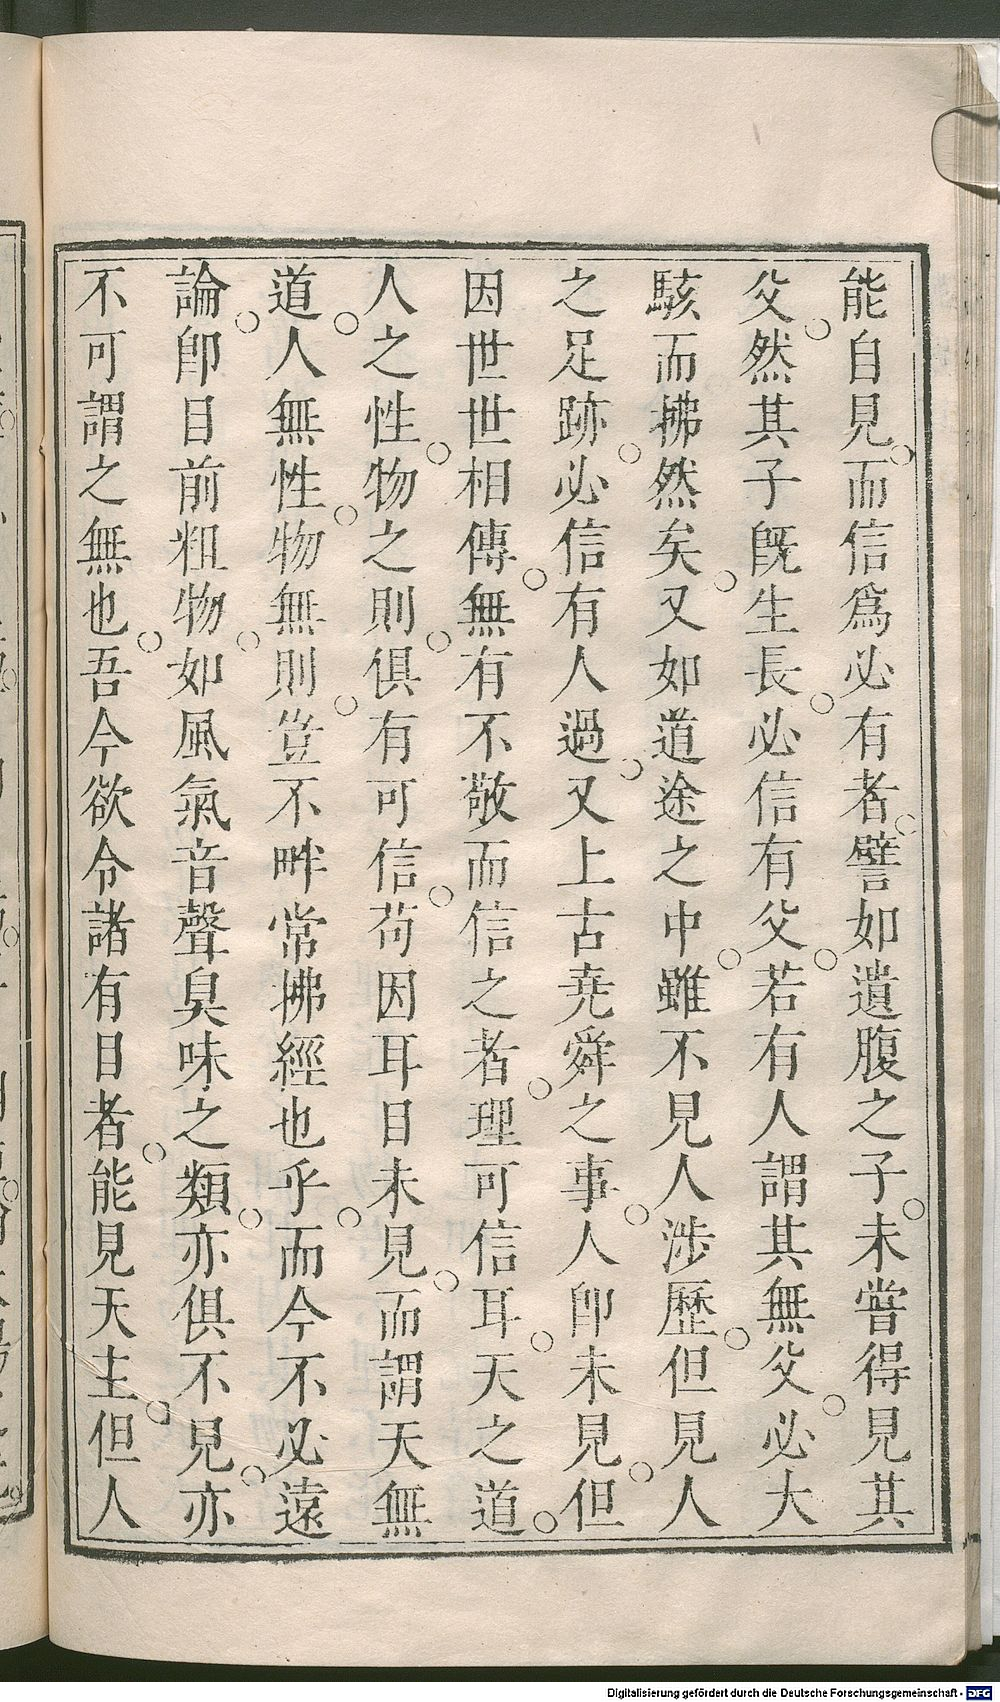 能自見。而信爲必有者。譬如遺腹之子。未嘗得見其
父。然其子旣生長。必信有父。若有人謂其無父。必大
駭而拂然矣。又如道途之中。雖不見人涉歷。但見人
之足跡。必信有人過。又上古堯舜之事。人卽未見。但
因世世相傳。無有不敬而信之者。理可信耳。天之道。
人之性。物之則。俱有可信。苟因耳目未見。而謂天無
道。人無性。物無則。豈不畔常拂經也乎。而今不必遠
論。卽目前粗物。如風氣音聲臭味之類。亦俱不見。亦
不可謂之無也。吾今欲令諸有目者。能見天主。但人
Digitalisierung gefördert durch die Deutsche Forschungsgemeinschaft - DFG